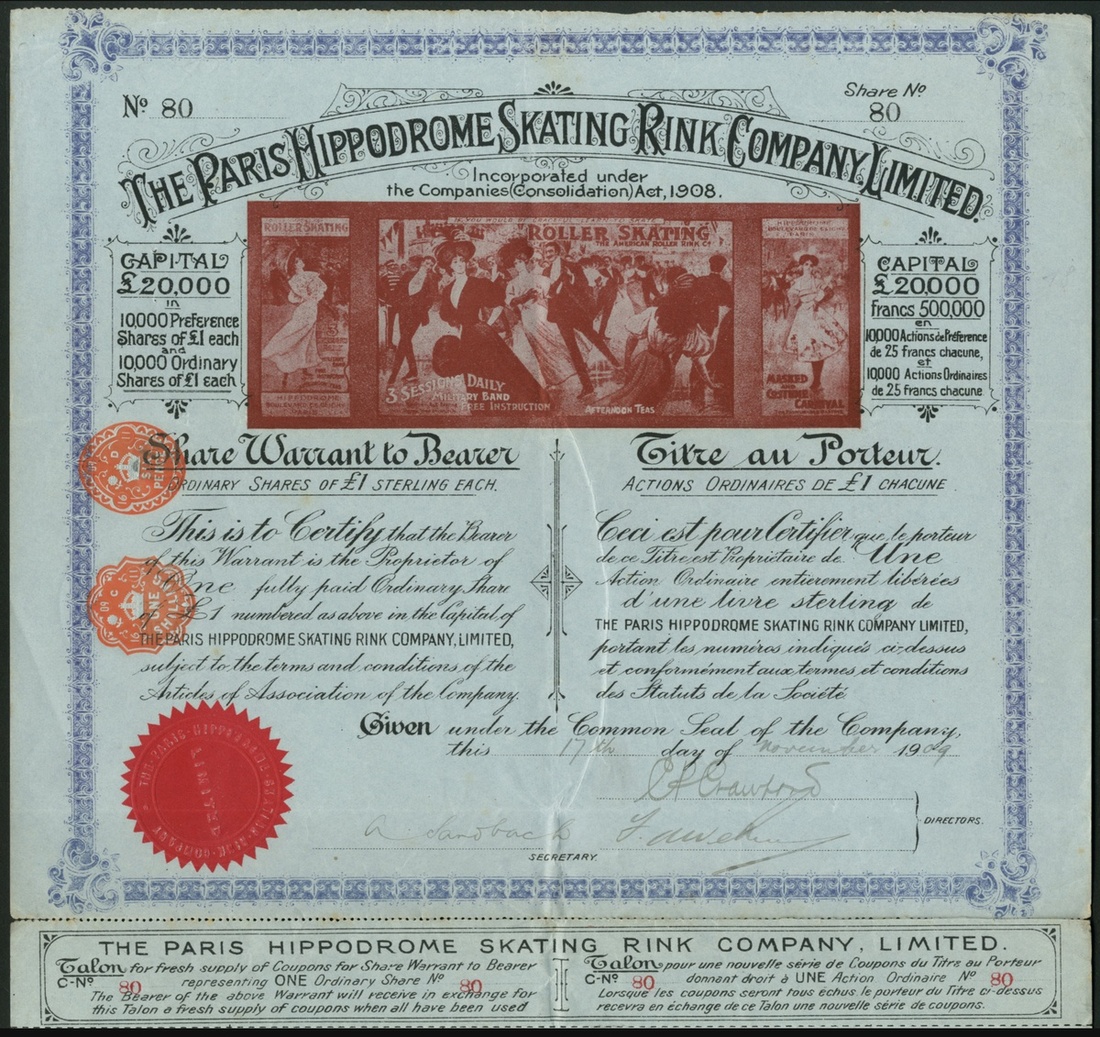 Nº 80
Share Nº
80
THE PARIS HIPPODROME SKATING RINK COMPANY, LIMITED.
Incorporated under
the Companies (Consolidation) Act, 1908.
CAPITAL
£20,000
in
10,000 Preference
Shares of £1 each
and
10,000 Ordinary
Shares of £1 each
ROLLER SKATING
HIPPODROME
PARIS
ROLLER SKATING
THE AMERICAN ROLLER RINK Co
3 SESSIONS DAILY
MILITARY BAND
FREE INSTRUCTION
AFTERNOON TEAS
HIPPODROME
PARIS
MASKED
AND
COSTUME
CARNIVAL
CAPITAL
£20,000
Francs 500,000
en
10,000 Actions de Préférence
de 25 francs chacune,
et
10,000 Actions Ordinaires
de 25 francs chacune
Share Warrant to Bearer
ORDINARY SHARES OF £1 STERLING EACH.
This is to Certify that the Bearer
of this Warrant is the Proprietor of
One fully paid Ordinary Share
of £1 numbered as above in the Capital of
THE PARIS HIPPODROME SKATING RINK COMPANY, LIMITED,
subject to the terms and conditions of the
Articles of Association of the Company.
Titre au Porteur.
ACTIONS ORDINAIRES DE £1 CHACUNE
Ceci est pour Certifier que le porteur
de ce Titre est Propriétaire de Une
Action Ordinaire entièrement libérées
d'une livre sterling de
THE PARIS HIPPODROME SKATING RINK COMPANY LIMITED,
portant les numéros indiqués ci-dessus
et conformément aux termes et conditions
des Statuts de la Société
ONE SHILLING
Given under the Common Seal of the Company,
this 17th day of november 1909
THE PARIS HIPPODROME SKATING RINK COMPANY
LIMITED
Crawford
DIRECTORS.
A Sandbach
SECRETARY.
THE PARIS HIPPODROME SKATING RINK COMPANY, LIMITED.
Talon for fresh supply of Coupons for Share Warrant to Bearer
C-Nº 80 representing ONE Ordinary Share Nº 80
The Bearer of the above Warrant will receive in exchange for
this Talon a fresh supply of coupons when all have been used
Talon pour une nouvelle série de Coupons du Titre au Porteur
C-Nº 80 donnant droit à UNE Action Ordinaire Nº 80
Lorsque les coupons seront tous échus le porteur du Titre ci-dessus
recevra en échange de ce Talon une nouvelle série de coupons.